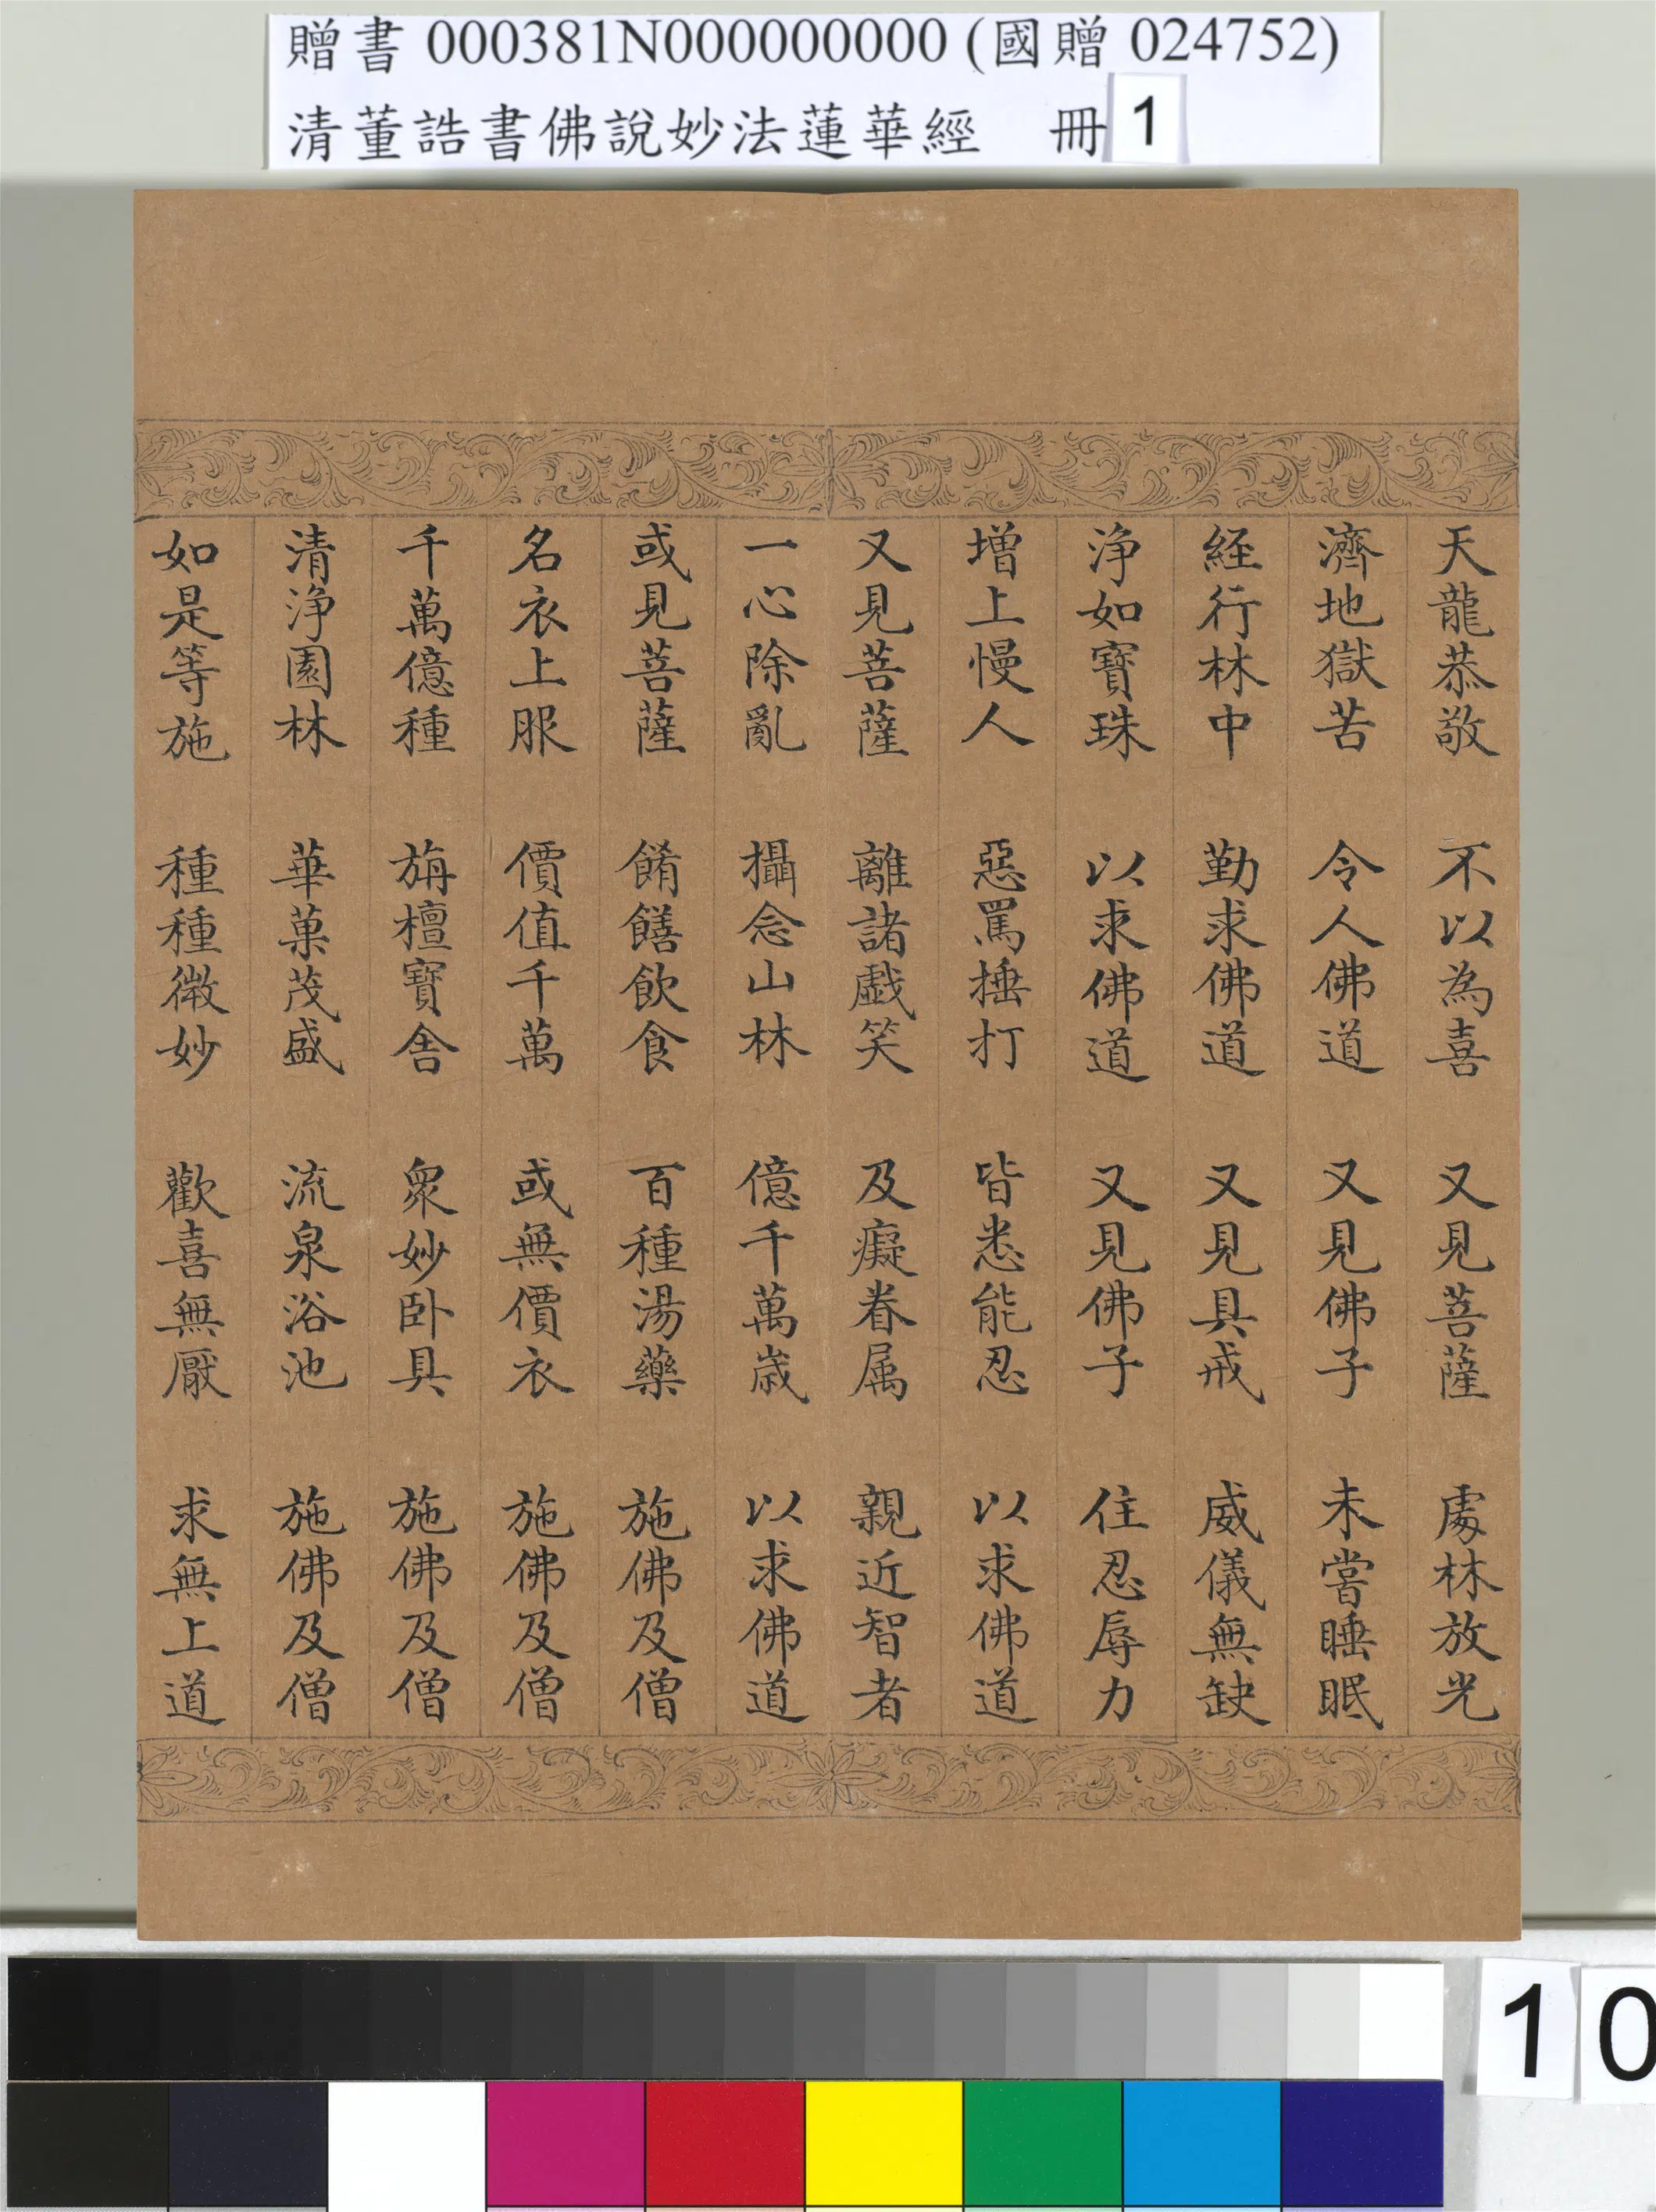 贈書 000381N000000000 (國贈 024752)
清董誥書佛說妙法蓮華經 冊 1
天龍恭敬 不以為喜 又見菩薩 處林放光
濟地獄苦 令人佛道 又見佛子 未嘗睡眠
経行林中 勤求佛道 又見具戒 威儀無缺
淨如寶珠 以求佛道 又見佛子 住忍辱力
增上慢人 惡罵捶打 皆悉能忍 以求佛道
又見菩薩 離諸戲笑 及癡眷属 親近智者
一心除亂 攝念山林 億千萬歲 以求佛道
或見菩薩 餚饍飲食 百種湯藥 施佛及僧
名衣上服 價值千萬 或無價衣 施佛及僧
千萬億種 旃檀寶舍 眾妙卧具 施佛及僧
清淨園林 華菓茂盛 流泉浴池 施佛及僧
如是等施 種種微妙 歡喜無厭 求無上道
10